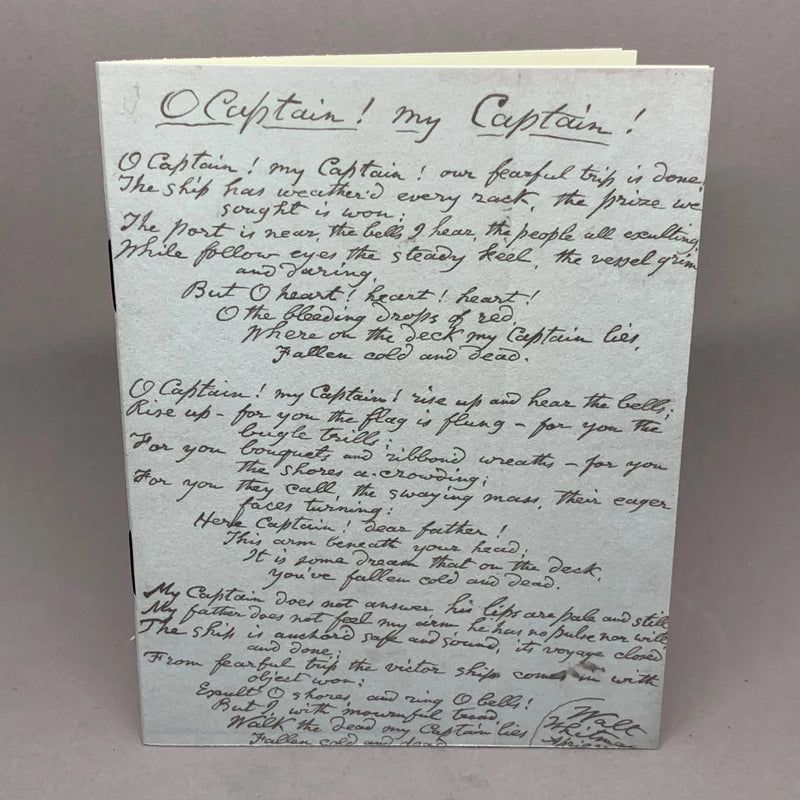 O Captain! my Captain!
O Captain! my Captain! our fearful trip is done,
The ship has weather'd every rack, the prize we
sought is won;
The port is near, the bells I hear, the people all exulting,
While follow eyes the steady keel, the vessel grim
and daring,
But O heart! heart! heart!
O the bleeding drops of red,
Where on the deck my Captain lies,
Fallen cold and dead.
O Captain! my Captain! rise up and hear the bells;
Rise up – for you the flag is flung – for you the
bugle trills;
For you bouquets and ribbon'd wreaths – for you
the shores a-crowding;
For you they call, the swaying mass, their eager
faces turning:
Here Captain! dear father!
This arm beneath your head;
It is some dream that on the deck,
You've fallen cold and dead.
My Captain does not answer, his lips are pale and still,
My father does not feel my arm, he has no pulse nor will,
The ship is anchor'd safe and sound, its voyage closed
and done;
From fearful trip the victor ship comes in with
object won:
Exult O shores, and ring O bells!
But I, with mournful tread,
Walk the deck my Captain lies
Fallen cold and dead
Walt
Whitman